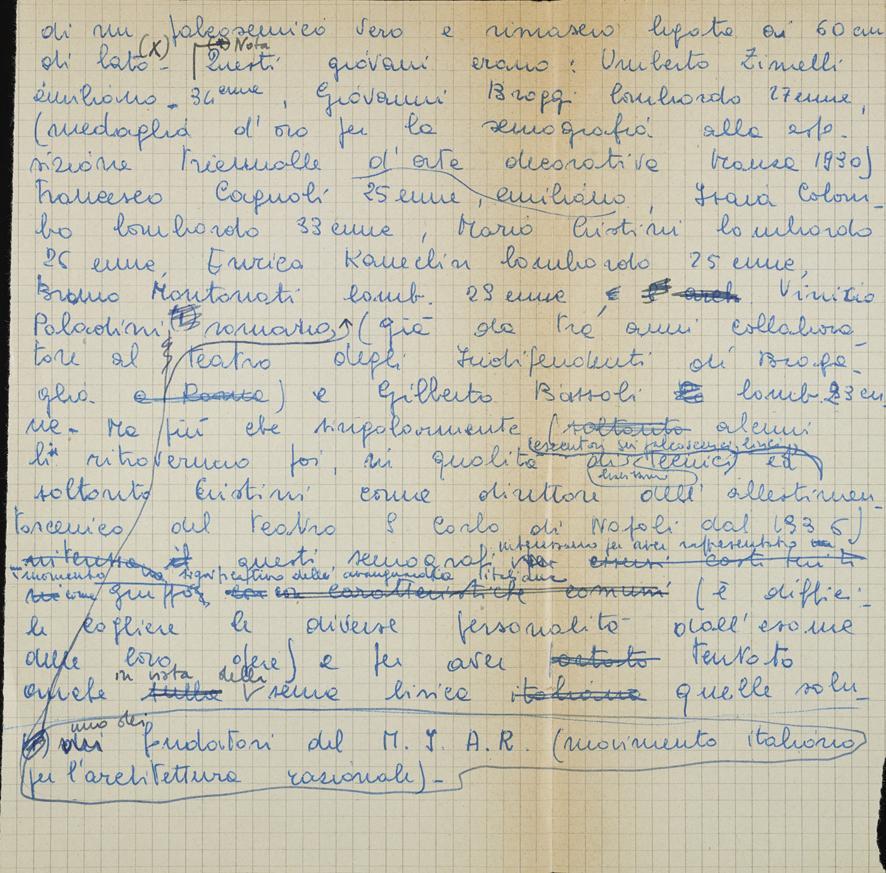 di un palcoscenico vero e rimasero legate ai 60 cm
di lato - (X) (*) Nota Questi giovani erano: Umberto Zimelli
emiliano - 34enne, Giovanni Broggi lombardo 27enne,
(medaglia d'oro per la scenografia alla espo-
sizione triennale d'arte decorativa Monza 1930)
Francesco Cagnoli 25enne, emiliano, Isaia Colom-
bo lombardo 33enne, Mario Cristini lombardo
26 enne, Enrico Kaneclin lombardo 25 enne,
Bruno Montonati lomb. 29 enne e arch Vinicio
Paladini, romano, (già da tre anni collabora-
tore al teatro degli Indipendenti di Braga-
glia a Roma) e Gilberto Bassoli lomb. 23 en
ne - Ma più che singolarmente (soltanto alcuni
(esecutori sui palcoscenici lirici)
li ritroveremo poi, in qualità di tecnici ed
soltanto Cristini come direttore dell'allestimen-
toscenico del teatro S Carlo di Napoli dal 1936)
interessano per aver rappresentato un
questi scenografi per essersi costituiti
momento significativo dell'avanguardia italiana
come gruppo con caratteristiche comuni (è diffici-
le cogliere le diverse personalità dall'esame
delle loro opere) e per aver tentato
in vista della
anche sulla scena lirica italiana quelle solu-
uno dei
dei fondatori del M. I. A. R. (movimento italiano
per l'architettura razionale) -